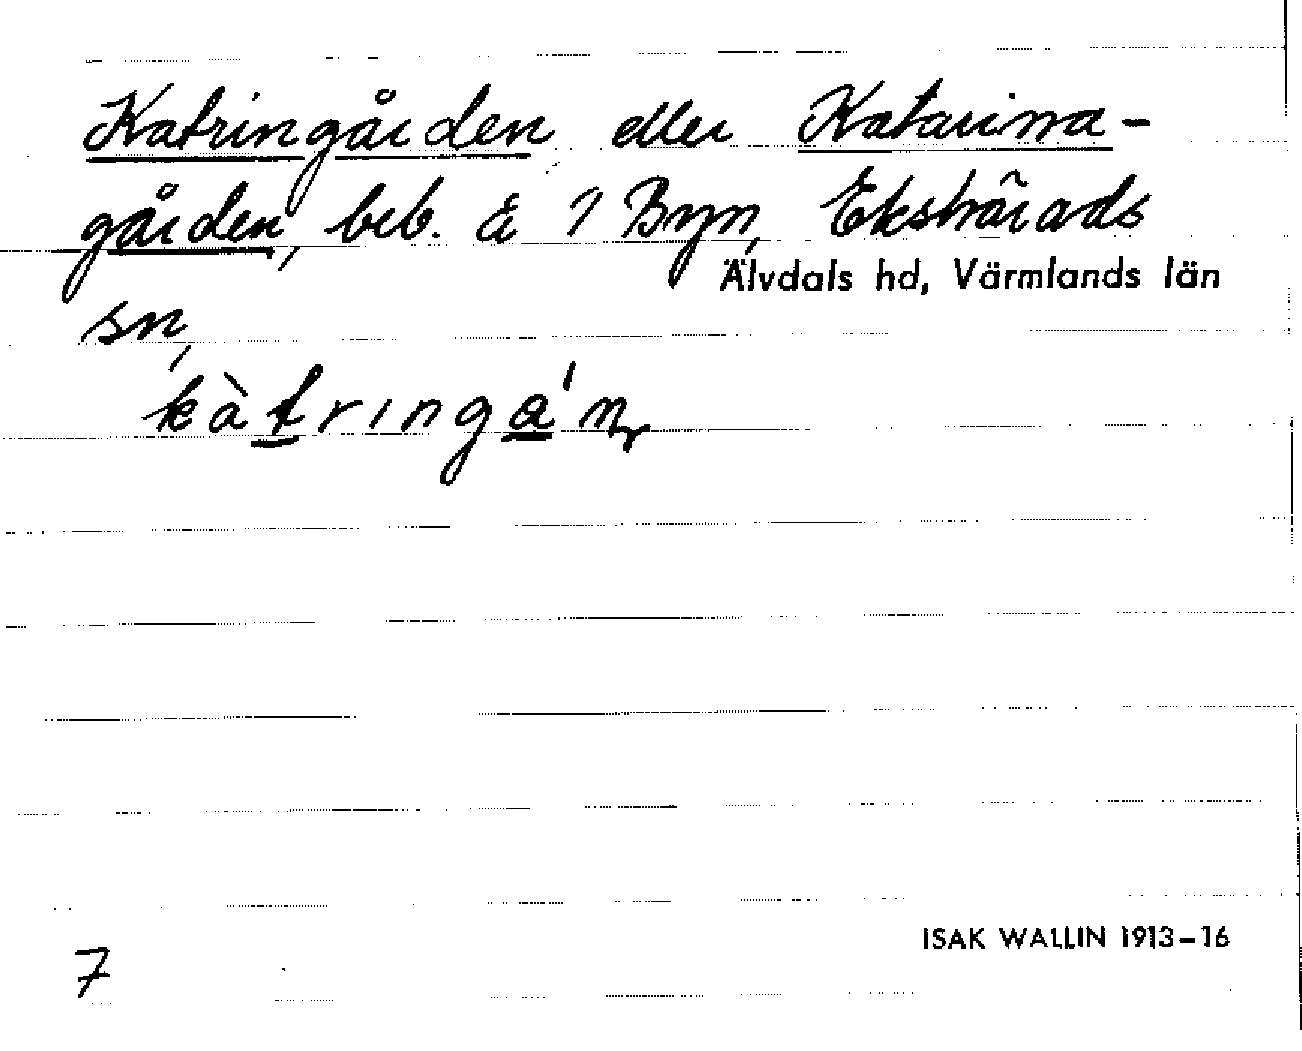 Katringården eller Katarina-
gården, beb. å 1 Byn, Ekshärads
Älvdals hd, Värmlands län
sn,
kàtringa'n
ISAK WALLIN 1913-16
7